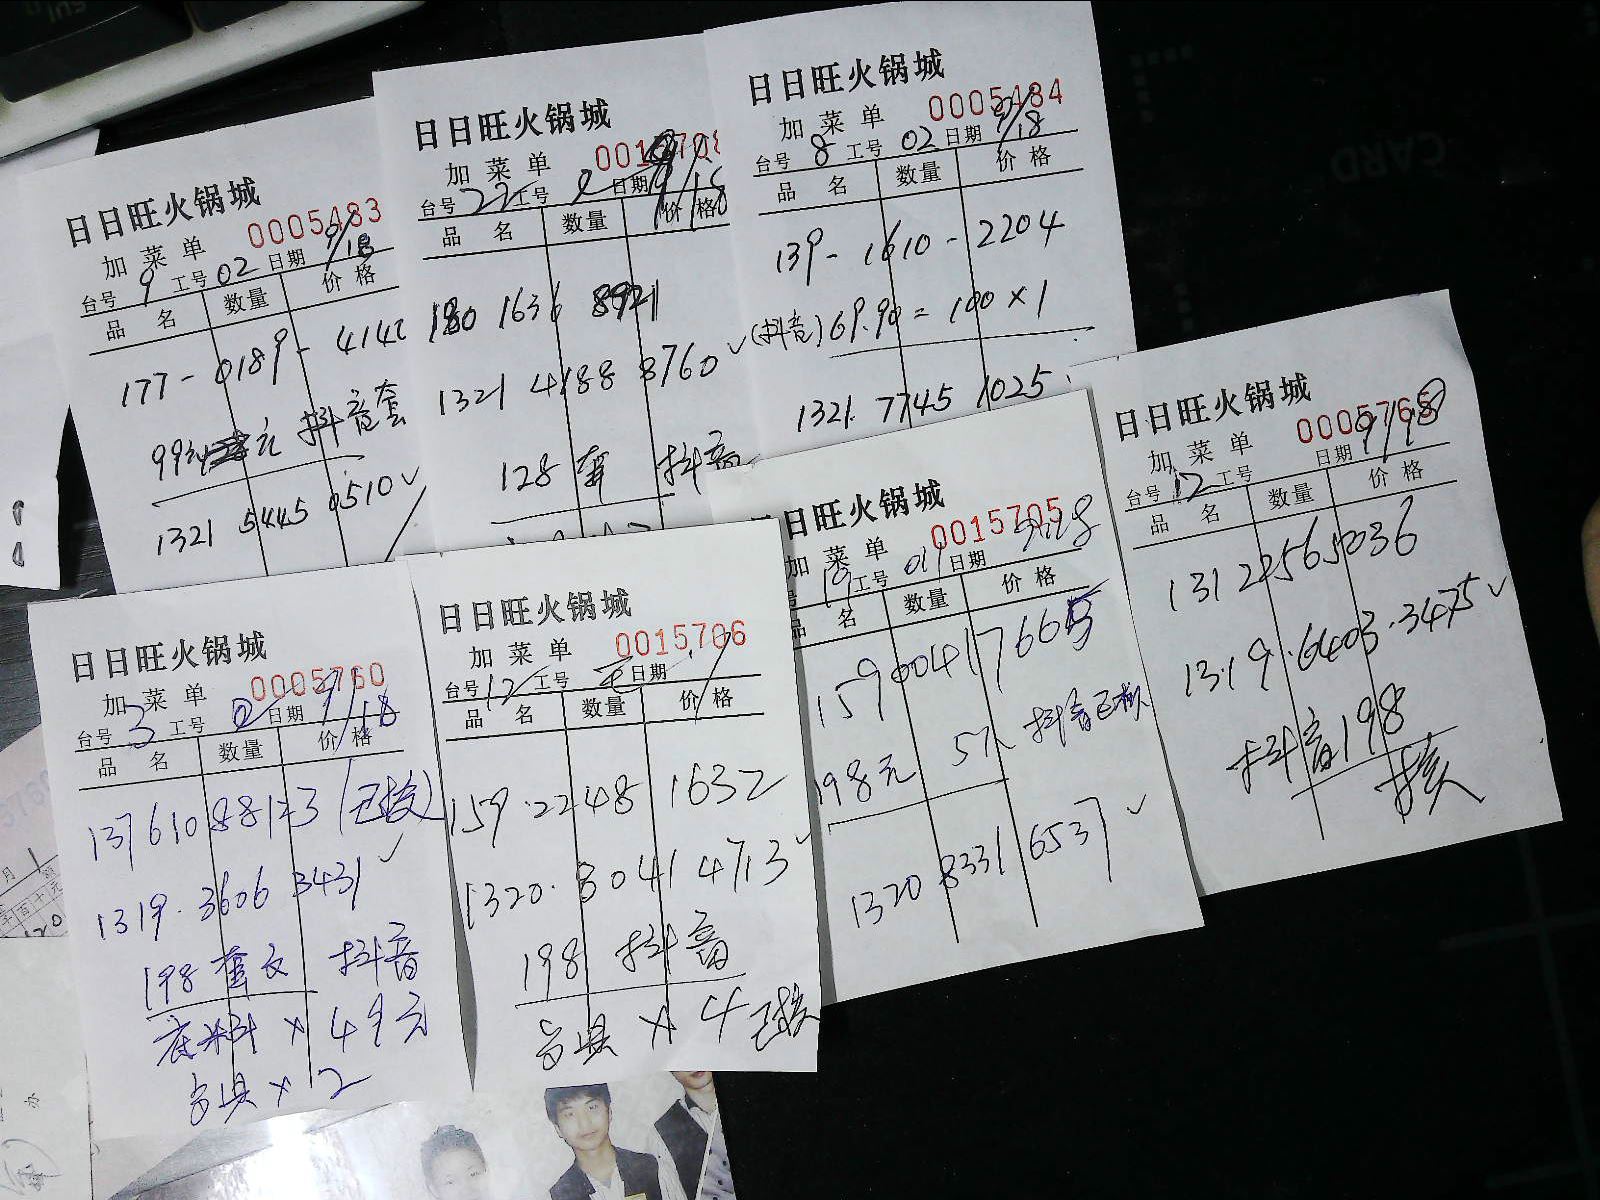 日日旺火锅城
加菜单 0005483
台号 9 工号 02 日期 9/18
品名 数量 价格
177-0189-414
99 元 抖音套
1321 5445 0510 ✓
日日旺火锅城
加菜单
台号 22 工号 2 日期 9/18
品名 数量 价格
180 1636 8921
1321 4188 8760 ✓
128 套 抖音
日日旺火锅城
加菜单 0005484
台号 8 工号 02 日期 9/18
品名 数量 价格
139-1610-2204
(抖音) 69.90 = 100 × 1
1321. 7745 1025
日日旺火锅城
加菜单 0005760
台号 3 工号 2 日期 9/18
品名 数量 价格
137610 88123 (已核)
1319. 3606 3431 ✓
198 套文 抖音
底料 × 49元
台具 × 2
日日旺火锅城
加菜单 0015706
台号 12 工号 日期
品名 数量 价格
159. 2248 1632
1320. 8041 4713 ✓
198 抖音
台具 × 4 已核
日日旺火锅城
加菜单 0015705
号 19 工号 01 日期 9.18
品名 数量 价格
159004176665
198元 5人 抖音已核
1320 8331 6537 ✓
日日旺火锅城
加菜单 0005765
台号 12 日期 9/18
品名 数量 价格
13122565036
13.19.6403.3475 ✓
抖音198
核